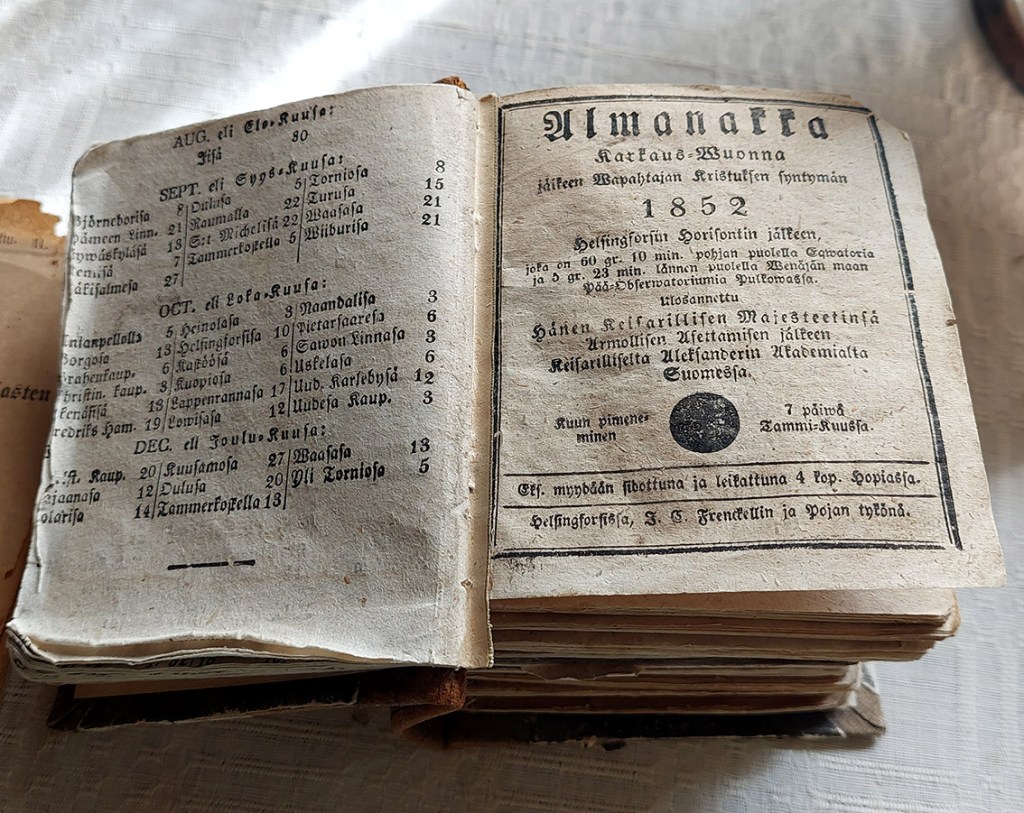 AUG. eli Elo-Kuusa:
Iisä 30
SEPT. eli Syys-Kuusa:
Björneborisa 8 Oulusa 5 Torniosa 8
Hämeen Linn. 21 Raumalla 22 Turusa 15
ywäskyläsä 13 S:t Michelisä 22 Waasasa 21
emisä 7 Tammerkoskella 5 Wiiburisa 21
äkisalmesa 27
OCT. eli Loka-Kuusa:
5 Heinolasa 3 Naandalisa 3
Borgosa 13 Helsingforsisa 10 Pietarsaaresa 6
rahenkaup. 6 Kaskösä 6 Sawon Linnasa 3
hristin. kaup. 3 Kuopiosa 6 Uskelasa 6
kenäsisä 13 Lappenrannasa 17 Uud. Karlebysä 12
redriks Ham. 19 Lowisasa 12 Uudesa Kaup. 3
DEC. eli Joulu-Kuusa:
Kaup. 20 Kuusamosa 27 Waasasa 13
ajaanasa 12 Oulusa 20 Yli Torniosa 5
olarisa 14 Tammerkoskella 13
asten
Almanakka
Karkaus-Wuonna
jälkeen Wapahtajan Kristuksen syntymän
1852
Helsingforsin Horisontin jälkeen,
joka on 60 gr. 10 min. pohjan puolella Eqwatoria
ja 5 gr. 23 min. lännen puolella Wenäjän maan
Pää-Observatoriumia Pulkowassa.
Ulosannettu
Hänen Keisarillisen Majesteetinsä
Armollisen Asettamisen jälkeen
Keisarilliselta Aleksanderin Akademialta
Suomessa.
Kuun pimene-
minen
7 päiwä
Tammi-Kuussa.
Eks. myydään sidottuna ja leikattuna 4 kop. Hopiassa.
Helsingforsissa, J. C. Frenckellin ja Pojan tykönä.